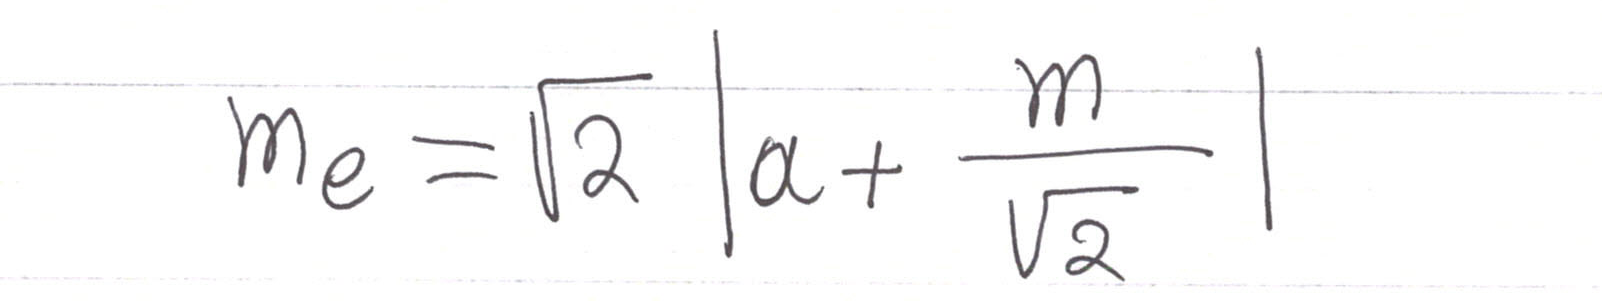 $m_e = \sqrt{2} \left| a + \frac{m}{\sqrt{2}} \right|$